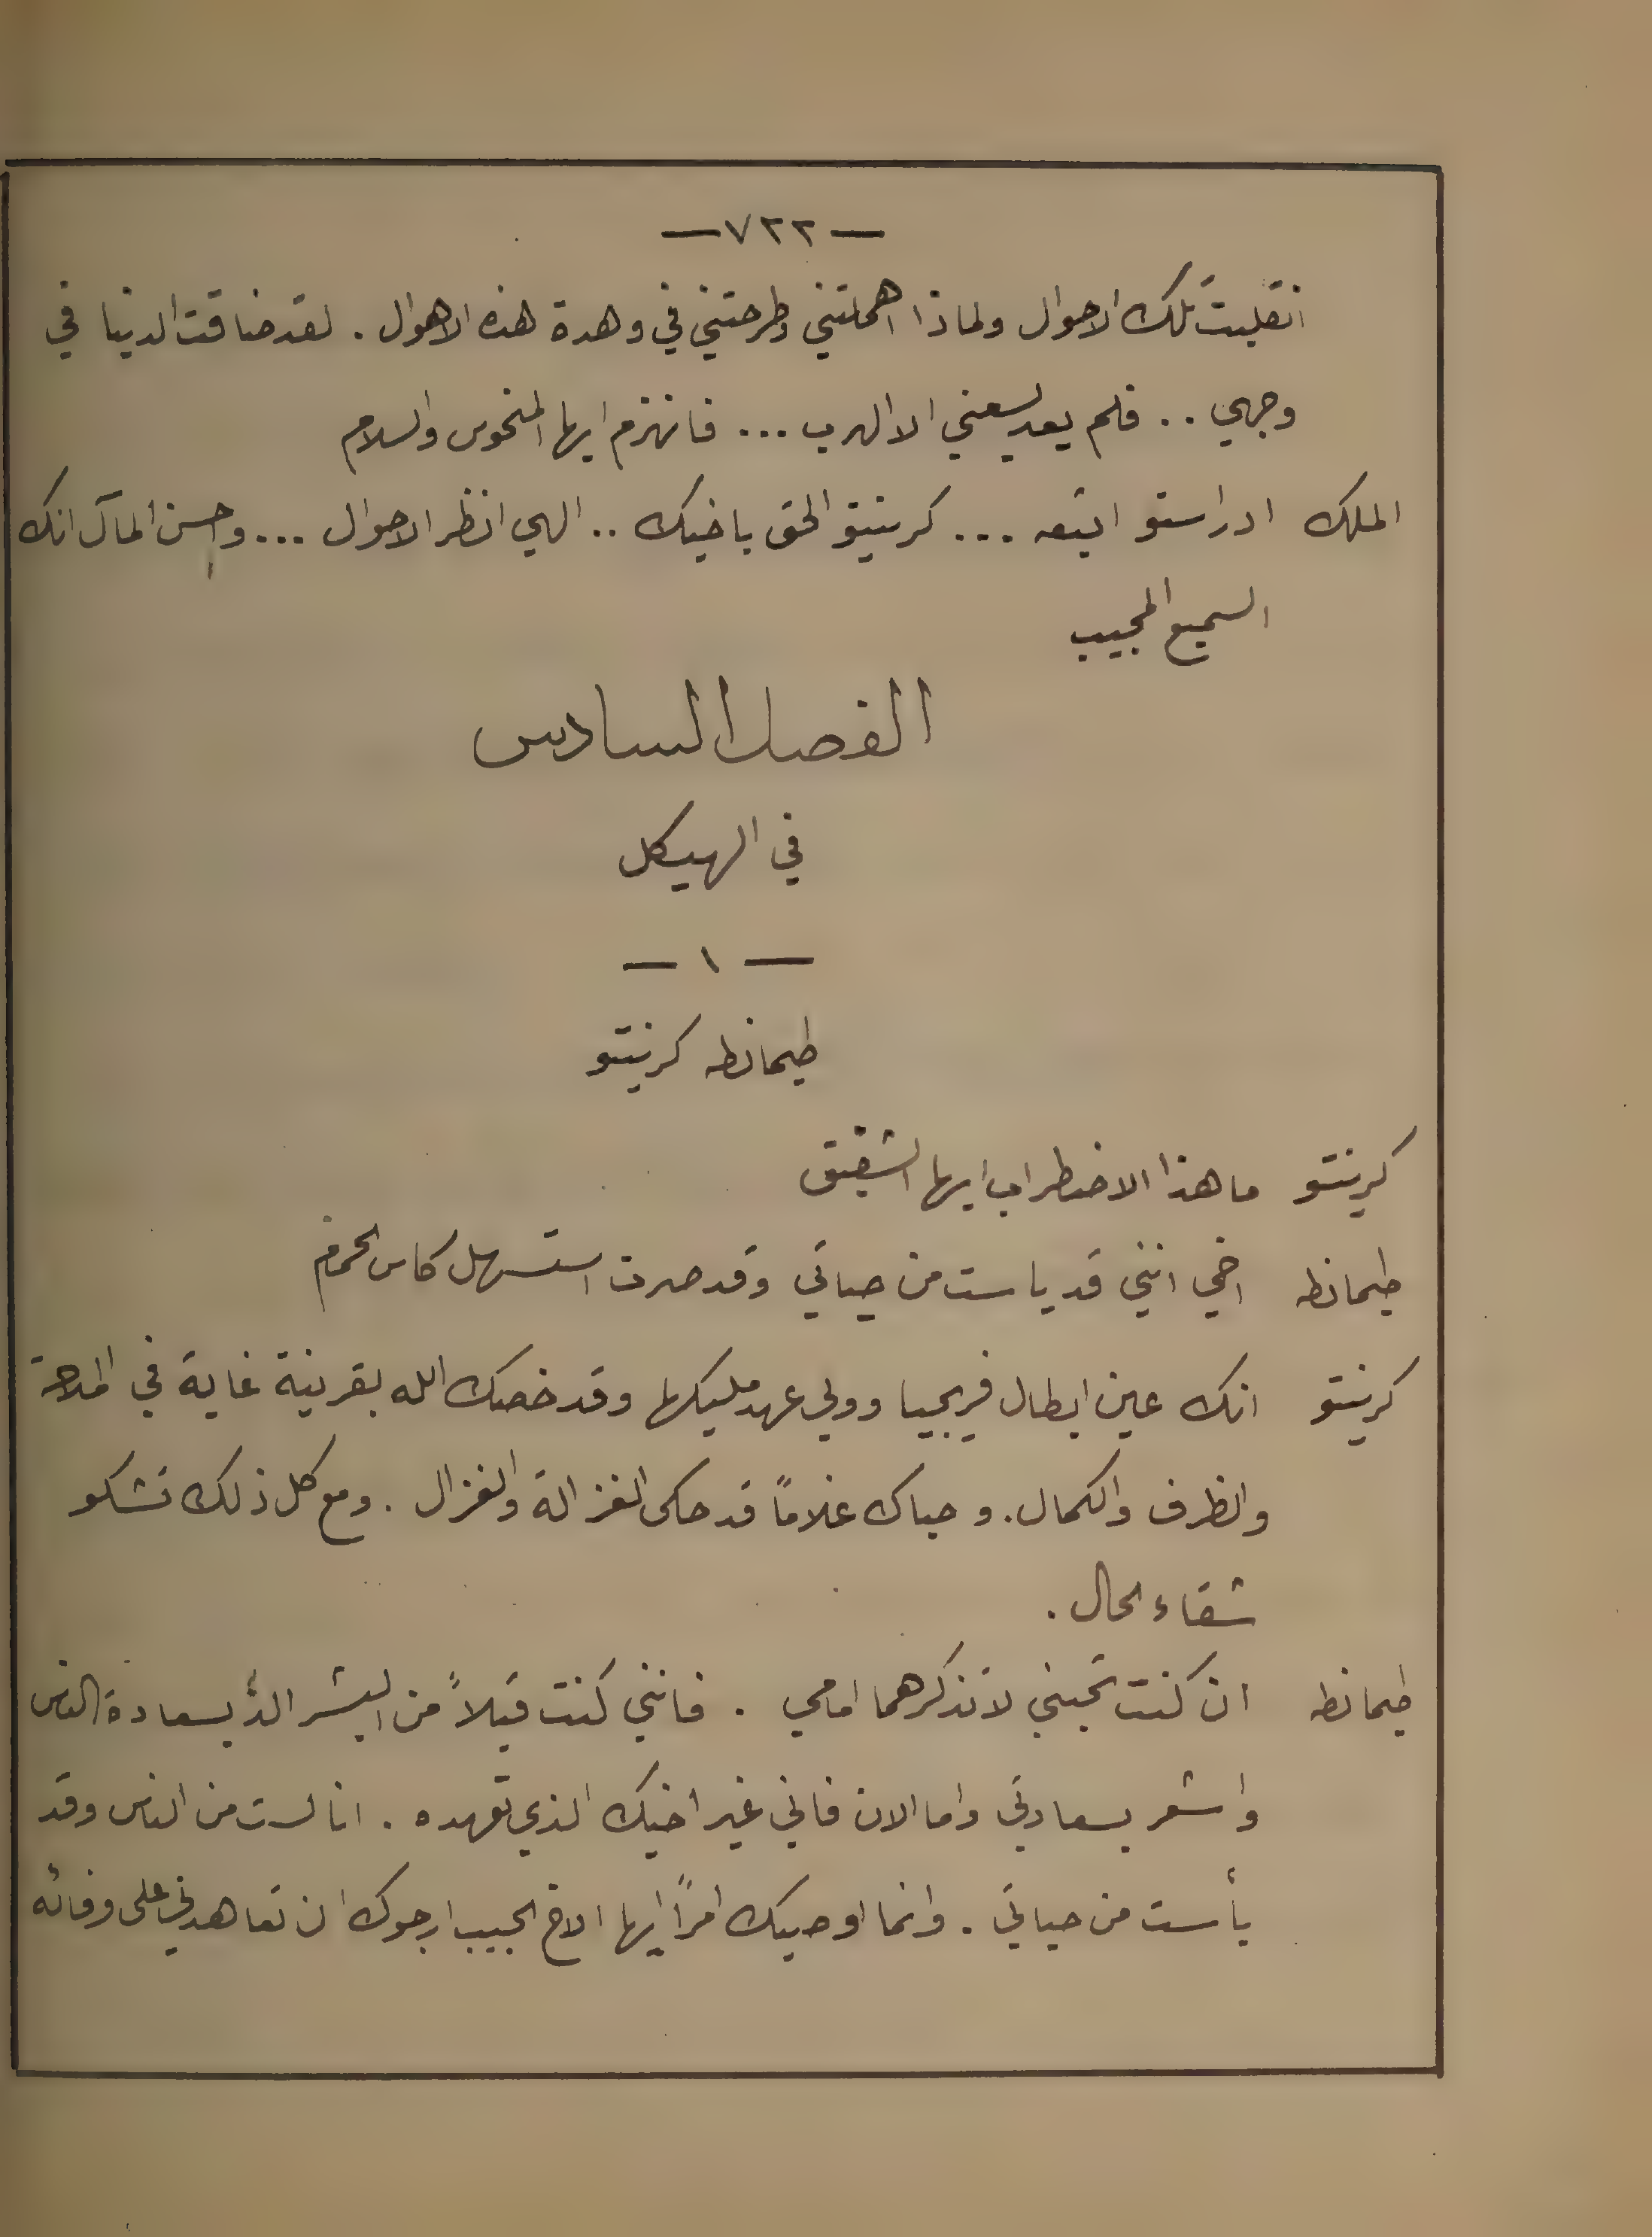 — ٧٢٢ —
انقلبت تلك الاحوال ولماذا اهملتني وطرحتني في وهدة هذه الاهوال . لقد ضاقت الدنيا في
وجهي .. فلم يعد يسعني الا الهرب ... فانهزم ايها المنحوس والسلام
الملك ادراستو اتبعه ... كرينتو الحق باخيك .. الهي انظر الاحوال ... واحسن المآل انك
السميع المجيب
الفصل السادس
في الهيكل
— ١ —
طيمانطه كرينتو
كرينتو ما هذا الاضطراب ايها الشقيق
طيمانطه اخي انني قد ياست من حياتي وقد صرت استسهل كاس الحمام
كرينتو انك عين ابطال فريجيا وولي عهد مليكها وقد خصك الله بقرينة غاية في الملاحة
والظرف والكمال . وحباك غلاماً قد حاكى الغزالة والغزال . ومع كل ذلك تشكو
شقاء الحال .
طيمانطه ان كنت تحبني لا تذكرهما امامي . فانني كنت قبلاً من البشر الذُّ بسعادة الناس
واشعر بسعادتي واما الان فاني غير اخيك الذي تعهده . انا لست من الناس وقد
يأست من حياتي . وانما اوصيك امراً ايها الاخ الحبيب ارجوك ان تعاهدني على وفائه